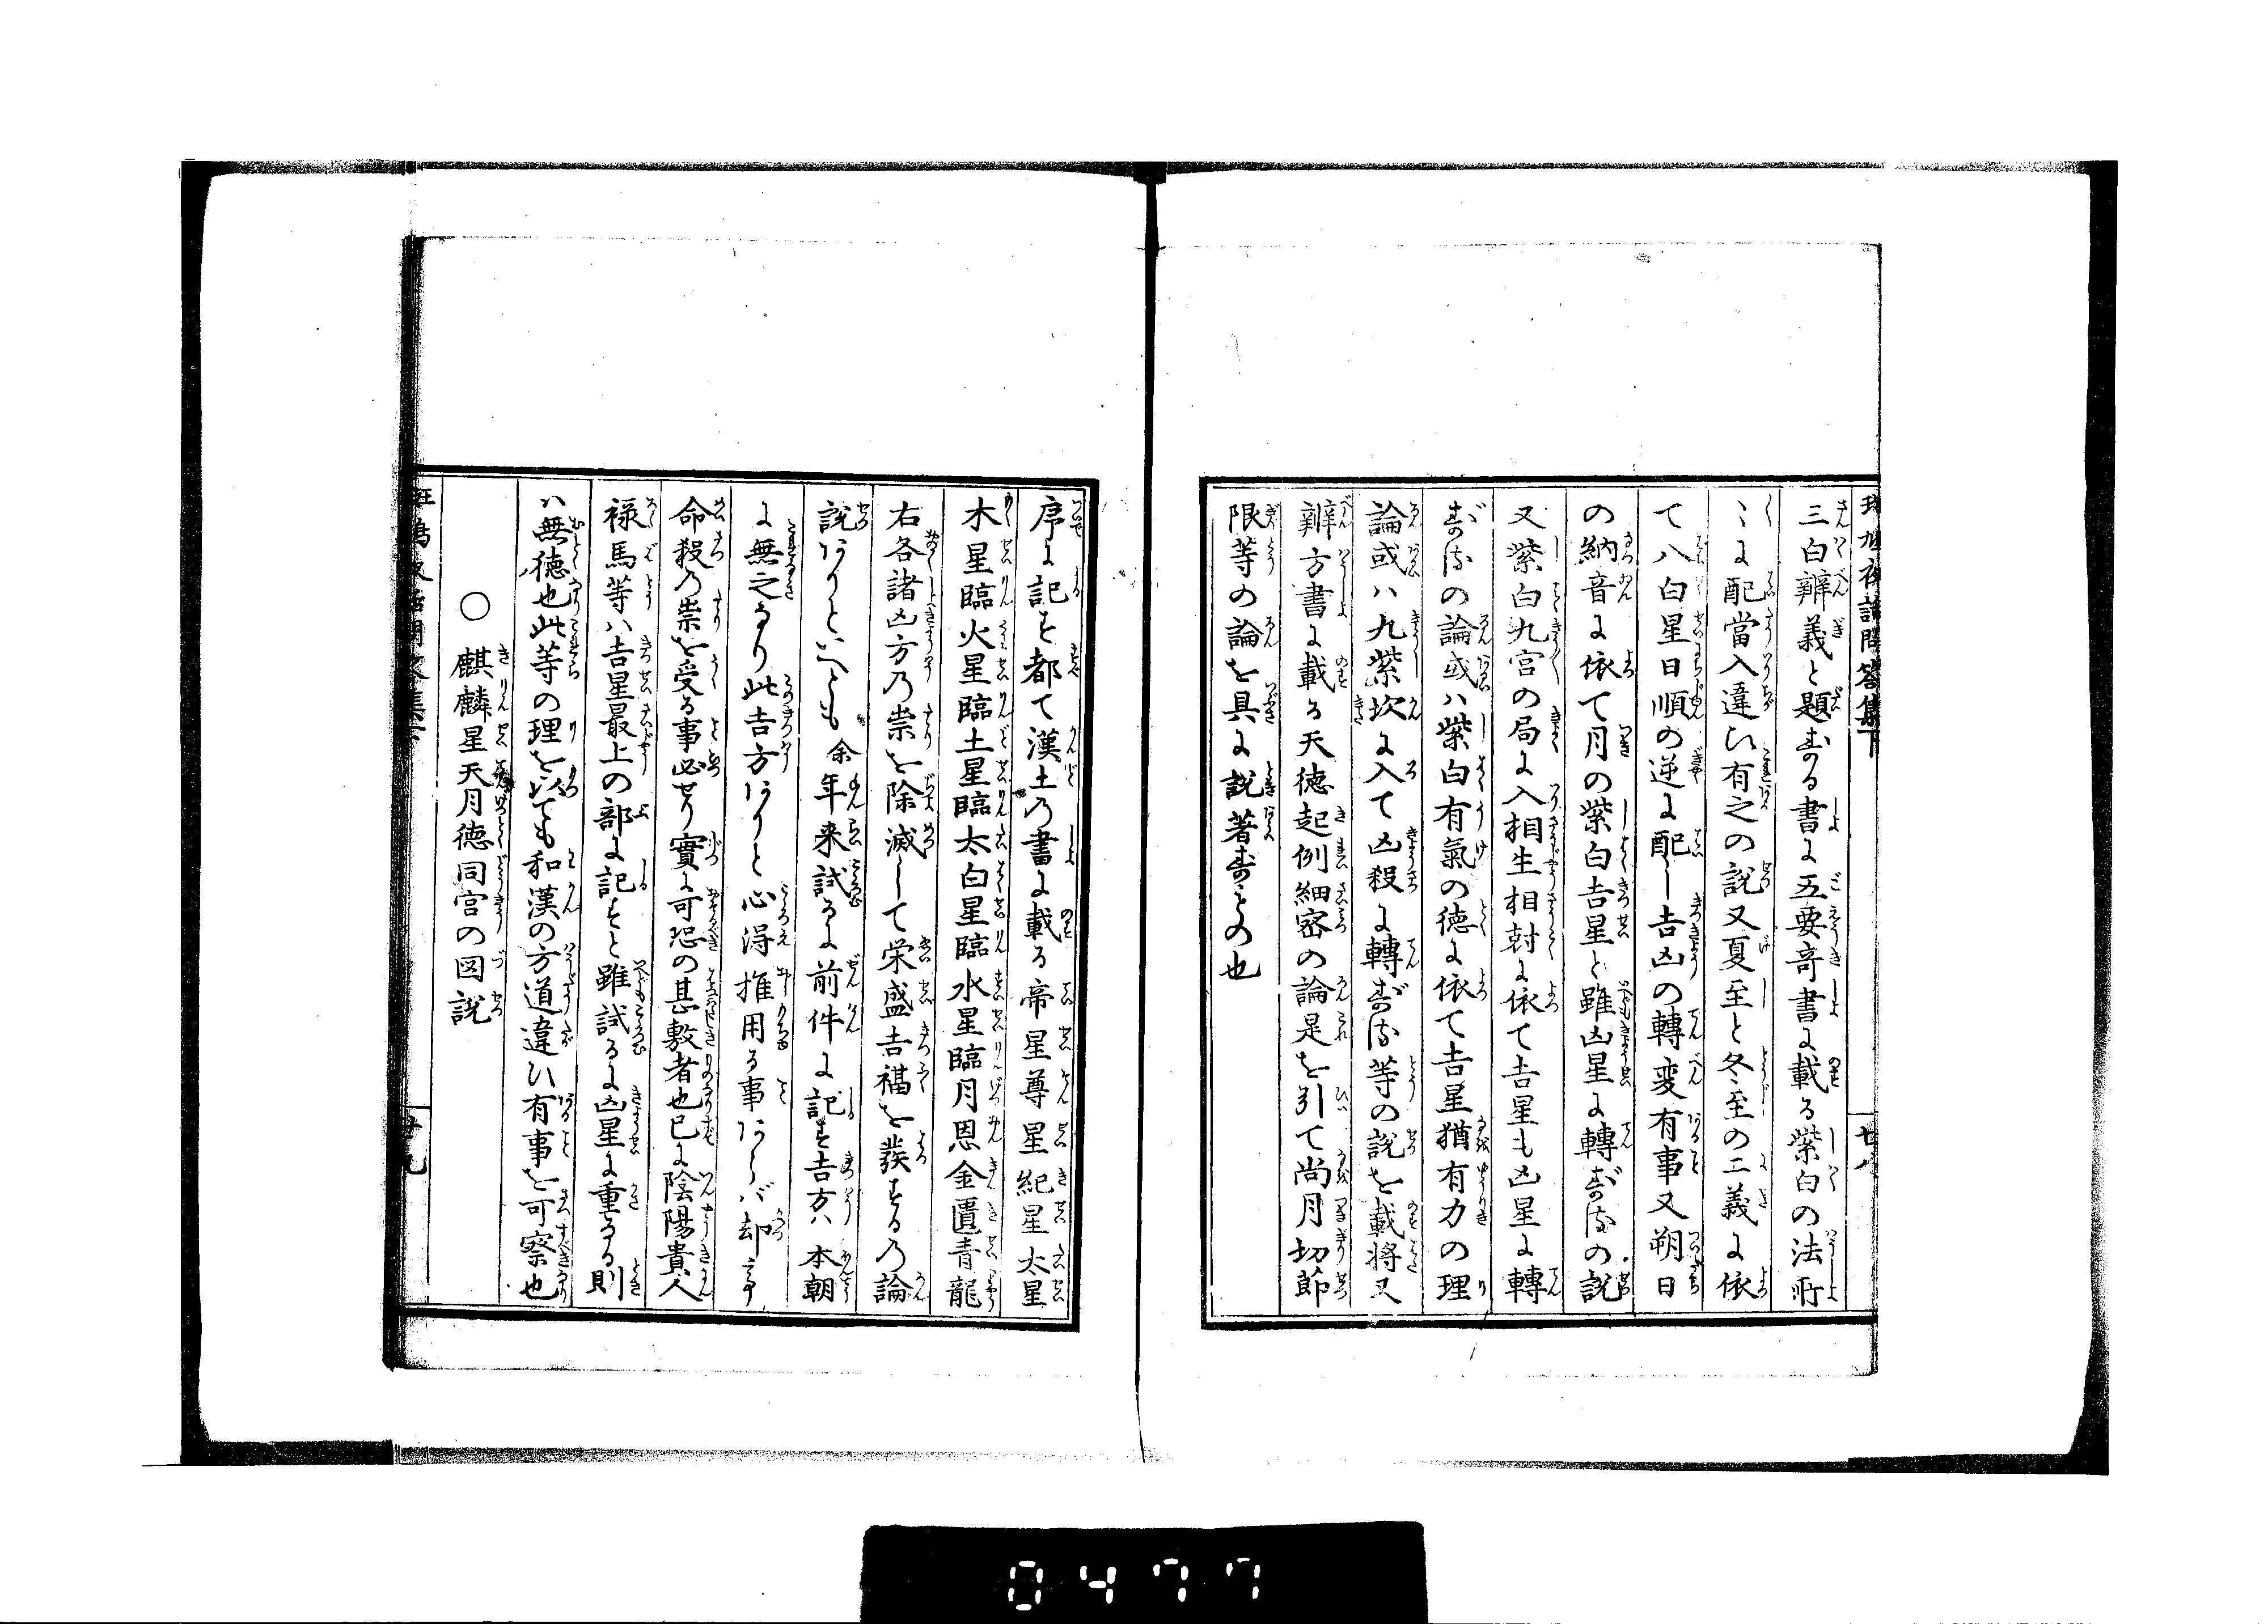 夜話問答集下
廿八
三白辨義と題する書に五要奇書に載る紫白の法所
〻に配當入違ひ有之の説又夏至と冬至の二義に依
て八白星日順の逆に配し吉凶の轉変有事又朔日
の納音に依て月の紫白吉星と雖凶星に轉ずるの説
又紫白九宮の局に入相生相尅に依て吉星も凶星に轉
ずるの論或ハ紫白有氣の徳に依て吉星猶有力の理
論或ハ九紫坎に入て凶殺に轉ずる等の説を載将又
辨方書に載る天徳起例細密の論是を引て尚月切節
限等の論を具に説著すもの也
序に記す都て漢土乃書に載る帝星尊星紀星太星
木星臨火星臨土星臨太白星臨水星臨月恩金匱青龍
右各諸凶方乃祟を除滅して栄盛吉福を發する乃論
説ありといへども余年来試るに前件に記す吉方ハ本朝
に無之なり此吉方ありと心得推用る事あらバ却亭
命殺乃祟を受る事必せり實に可恐の甚敷者也已に陰陽貴人
禄馬等ハ吉星最上の部に記すと雖試るに凶星に重なる則
ハ無徳也此等の理を以ても和漢の方道違ひ有事を可察也
○麒麟星天月徳同宮の図説
廿九